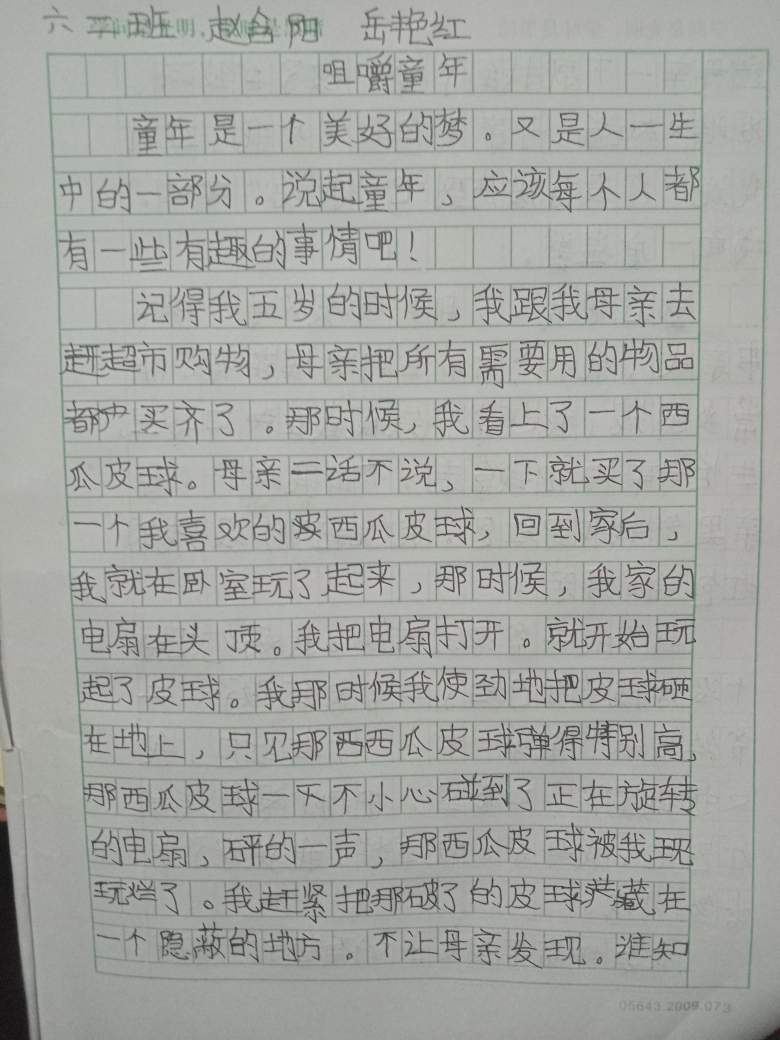 六 班 赵含阳 岳艳红
咀嚼童年
童年是一个美好的梦。又是人一生
中的一部分。说起童年，应该每个人都
有一些有趣的事情吧！
记得我五岁的时候，我跟我母亲去
赶超市购物，母亲把所有需要用的物品
都买齐了。那时候，我看上了一个西
瓜皮球。母亲二话不说，一下就买了那
一个我喜欢的西瓜皮球，回到家后，
我就在卧室玩了起来，那时候，我家的
电扇在头顶。我把电扇打开。就开始玩
起了皮球。我那时候我使劲地把皮球砸
在地上，只见那西西瓜皮球弹得特别高，
那西瓜皮球一下不小心碰到了正在旋转
的电扇，砰的一声，那西瓜皮球被我玩
玩烂了。我赶紧把那破了的皮球藏在
一个隐蔽的地方。不让母亲发现。谁知
05643.2009.073